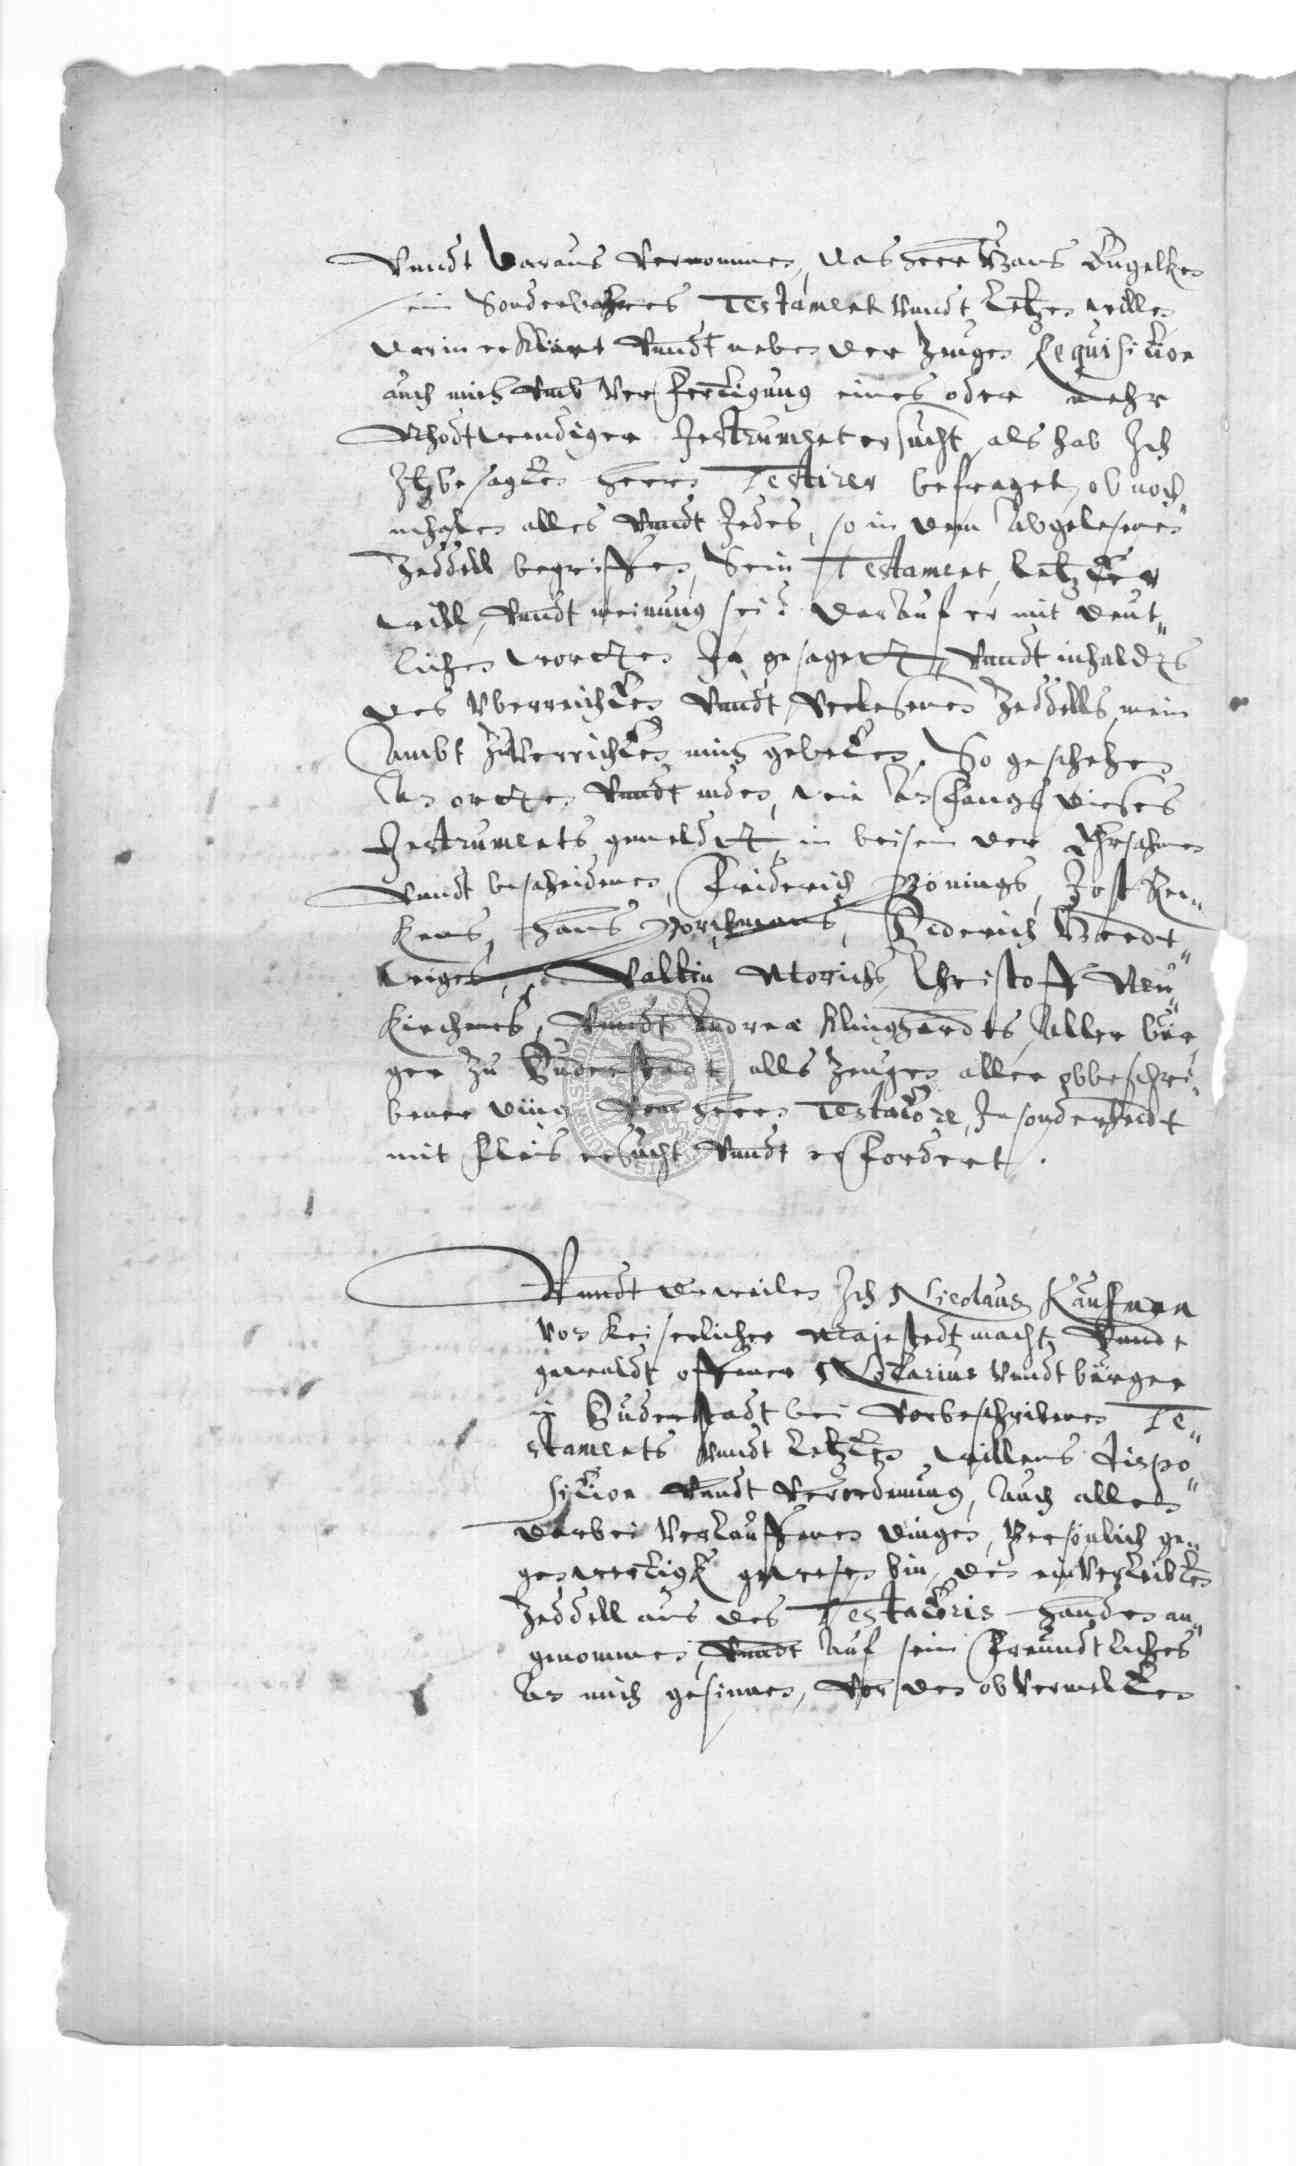 Vundt daraus vernommen, das Herr Hans Engelken
ein Sonderbahres Testament vundt letzen willen
darin erklärt vundt neben der Zeugen Requisition
auch mich vmb Verfertigung eines oder mehr
Nhodtwendiger Instrument ersucht, als hab Ich
Itzbesagten Herrn Testirer befraget, ob noch
inhalten alles vundt Jedes, so in dem abgelesenen
Zeddell begriffen, Sein Testament, letzter
will, vundt meinung sei? darauf er mit deut„
lichen wortten Ja gesagett, vundt inhaldts
des vberreichten vundt verlesenen Zeddells mein
Ambt zuverrichten mich gebeten. So geschehen
An ortten vundt enden, wie Anfangs dieses
Instruments gemeldtt, in beisein der Ehrsahmen
vundt bescheidenen, Friderich Bönings, Jost Rei„
kens, Hans Borchmans, Diderich Brodt„
weges, Valtin Morichs, Christoff Neu„
kirchens, vundt Andreæ Klinghardts, Aller bür„
ger zu Duderstadt, alls Zeugen aller obbeschrie„
bener ding vom Herrn Testatore, Insonderheidt
mit fleis ersucht vundt erfordert.
Vundt dweilen Ich Nicolaus Kaufman
von Keiserlicher Majestedt macht vundt
gewaldt offener Notarius vundt bürger
in Duderstadt bei vorbeschribenen Te„
staments vundt letzten willens dispo„
sition vundt Verordnung, Auch allen
darbei verlauffenen dingen, Persönlich ge„
genwertigk gewesen bin, den einverleibten
Zeddell aus des Testatoris handen an„
genommen, vundt auf sein freundtliches
An mich gesinnen, vor den obvermelten